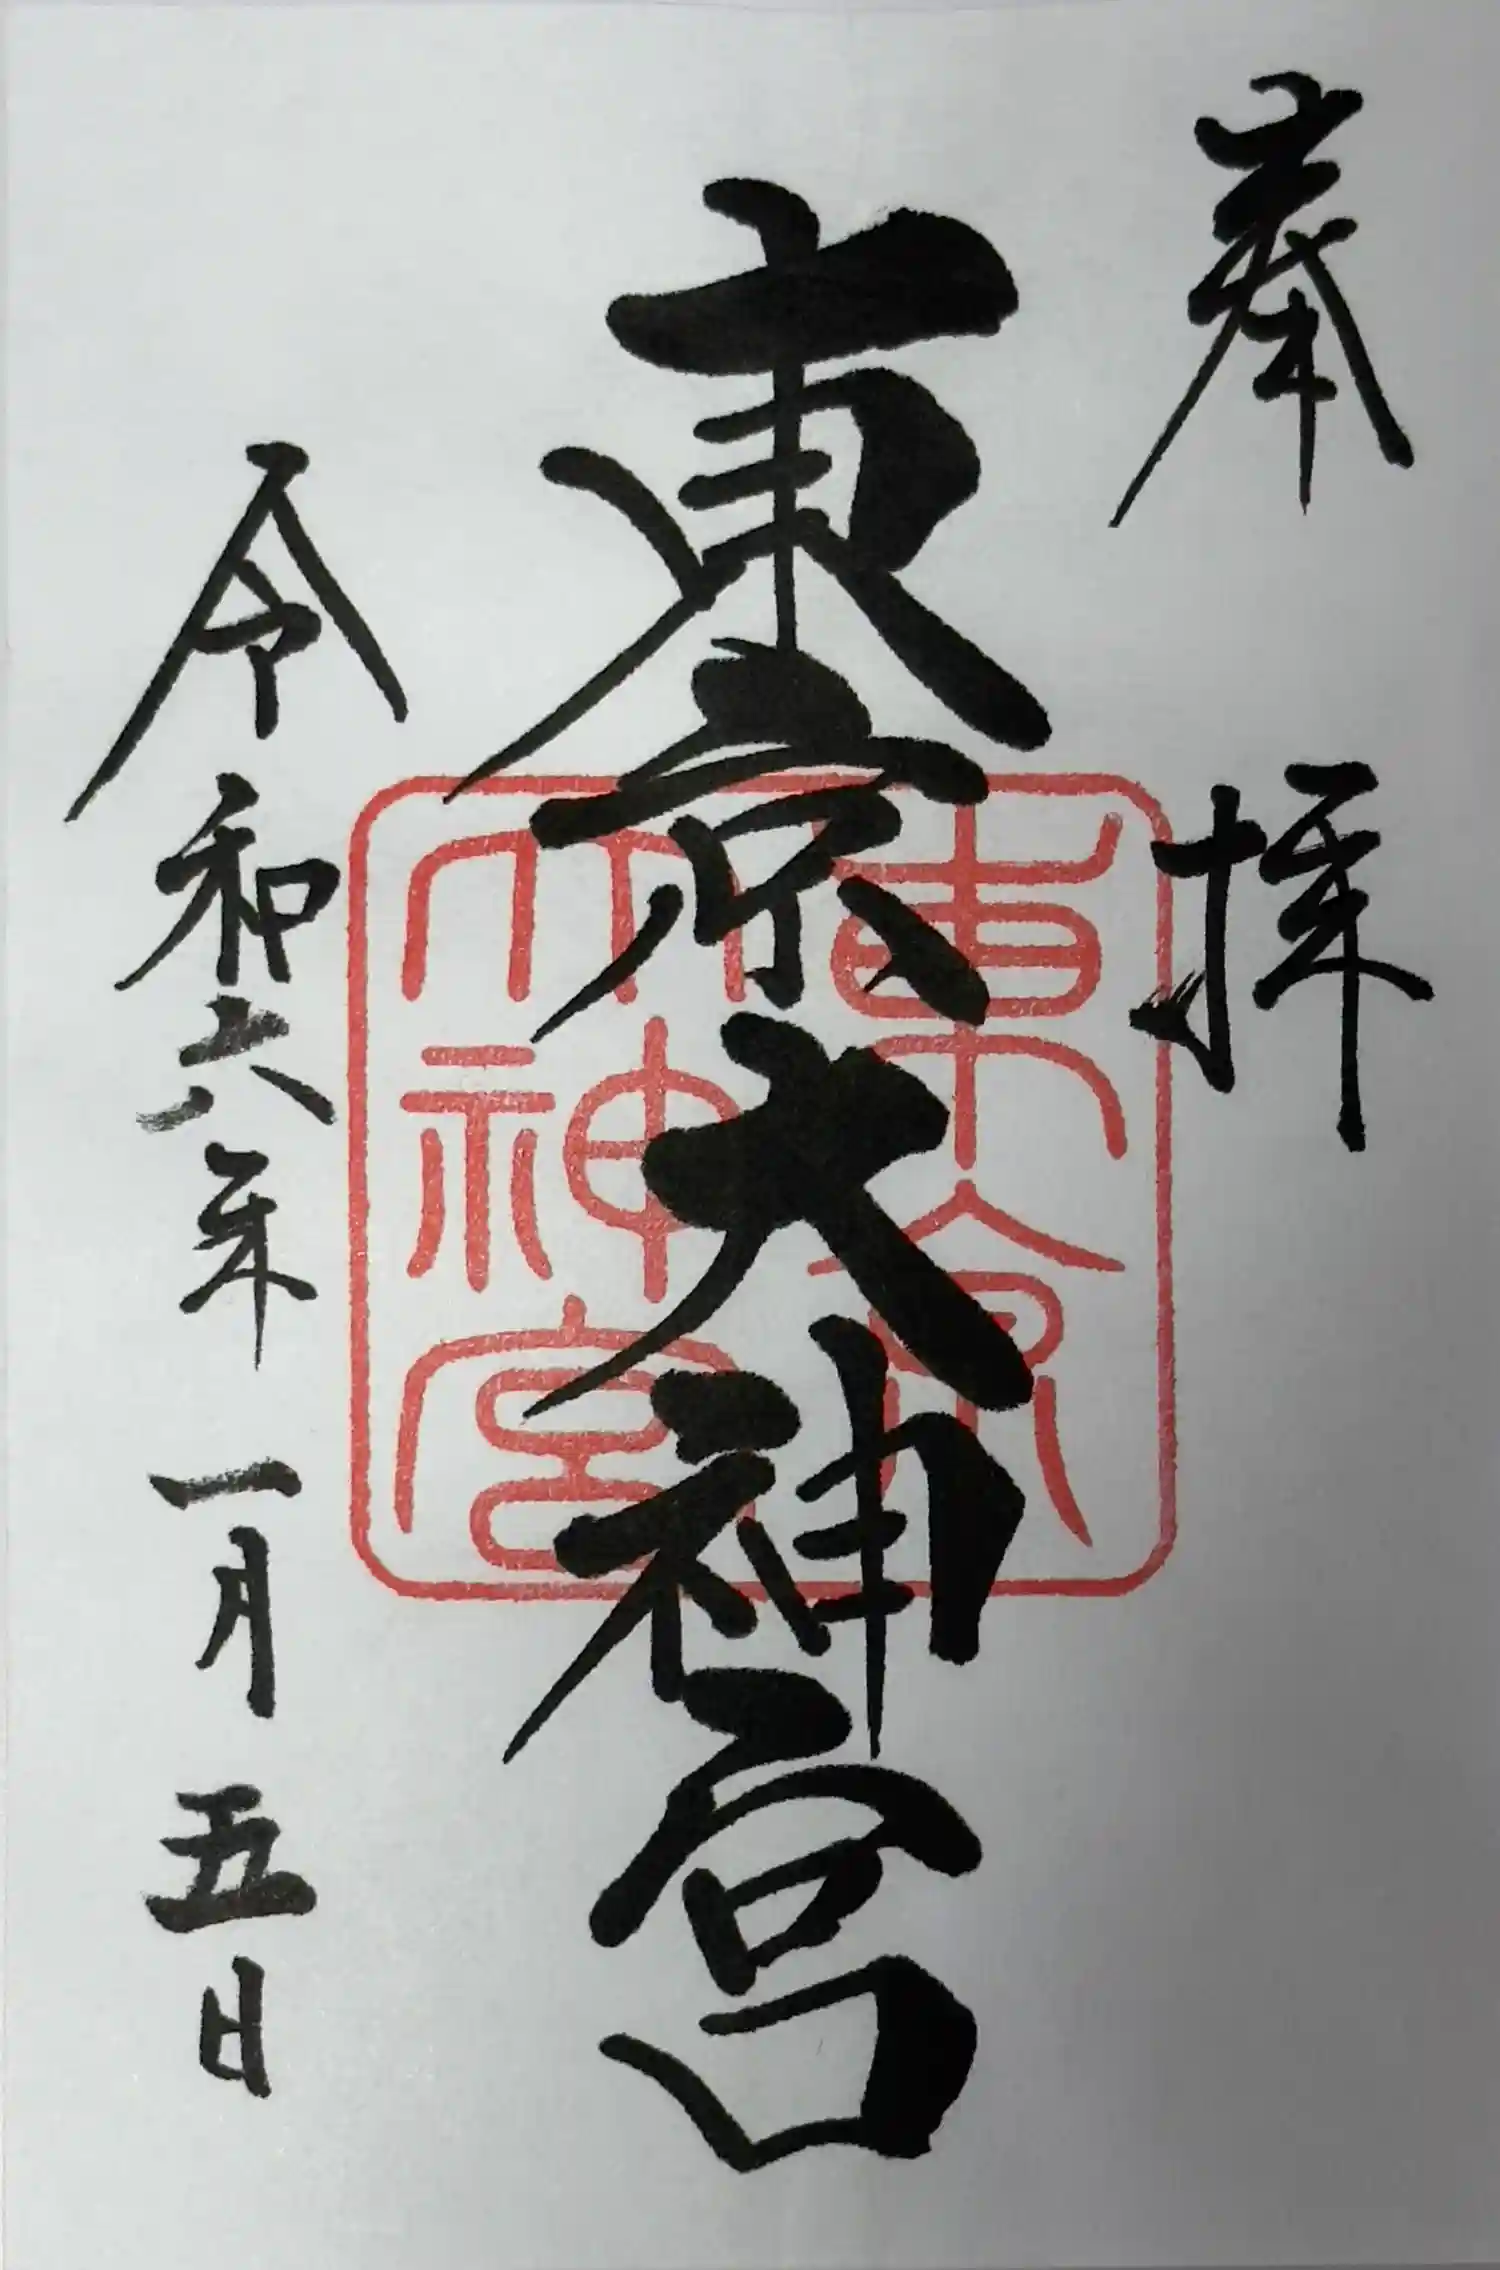 奉拝
東京大神宮
東京
大神宮
令和六年一月五日